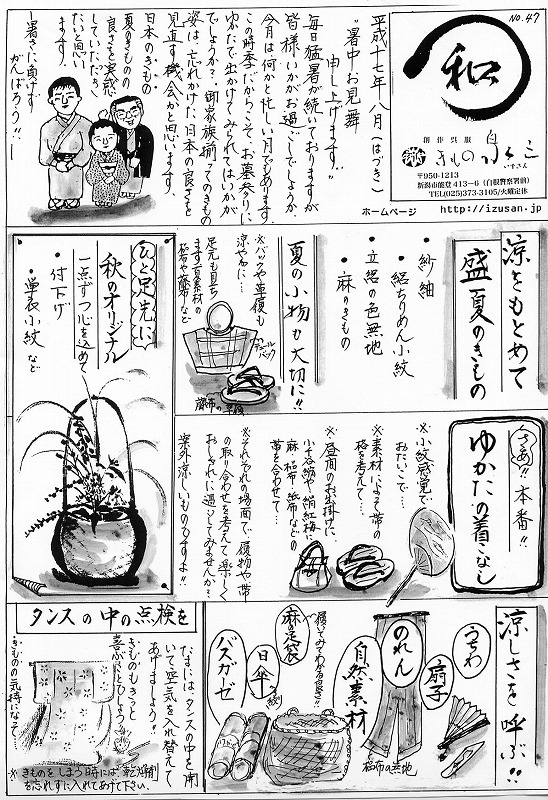 NO.47
和
創作呉服
きもの
いずさん
〒950-1213
新潟市能登413-6(白根警察署前)
TEL(025)373-3105/火曜定休
ホームページ http://izusan.jp
平成十七年八月(はづき)
"暑中お見舞
申し上げます"
毎日猛暑が続いておりますが
皆様いかがお過ごしでしょうか。
今月は何かと忙しい月でもあります。
この時季だからこそ、お墓参りに
ゆかたで出かけてみられてはいかが
でしょうか?御家族揃ってのきもの
姿は、忘れかけた日本の良さを
見直す機会かと思います。
日本のきもの
夏のきものの
良さを実感
していただき
たいと思い
ます。
―暑さに負けず
がんばろう!!―
涼をもとめて
盛夏のきもの
・紗紬
・絽ちりめん小紋
・立絽の色無地
・麻のきもの
夏の小物も大切に!!
※バックや草履も
涼やかに…
足元も目立ち
ます。夏素材の
ひと足先に
秋のオリジナル
一点ずつ心を込めて
・付下げ
・単衣小紋など
さあ!!本番!!
ゆかたの着こなし
※小紋感覚で
おたいこで…
※素材によって帯の
格を考えて…
※昼間のお出掛けに、
小千谷紬や絹紅梅に
麻・科布・紙布などの
帯を合わせて…
※それぞれの場面で、履物や帯
の取り合わせを考えて楽しく
おしゃれに過ごしてみませんか?
案外涼しいものですよ!!
涼しさを呼ぶ!!
うちわ
扇子
のれん
自然素材
履いてみてわかる良さ!!
麻の足袋
日傘
バスガゼ
タンスの中の点検を
たまにはタンスの中を開
いて空気を入れ替えて
あげましょう!!
きものもきっと
喜ぶことでしょう
…きものの気持になって…
※きものをしまう時には、乾燥剤
を忘れずに入れてあげて下さい。